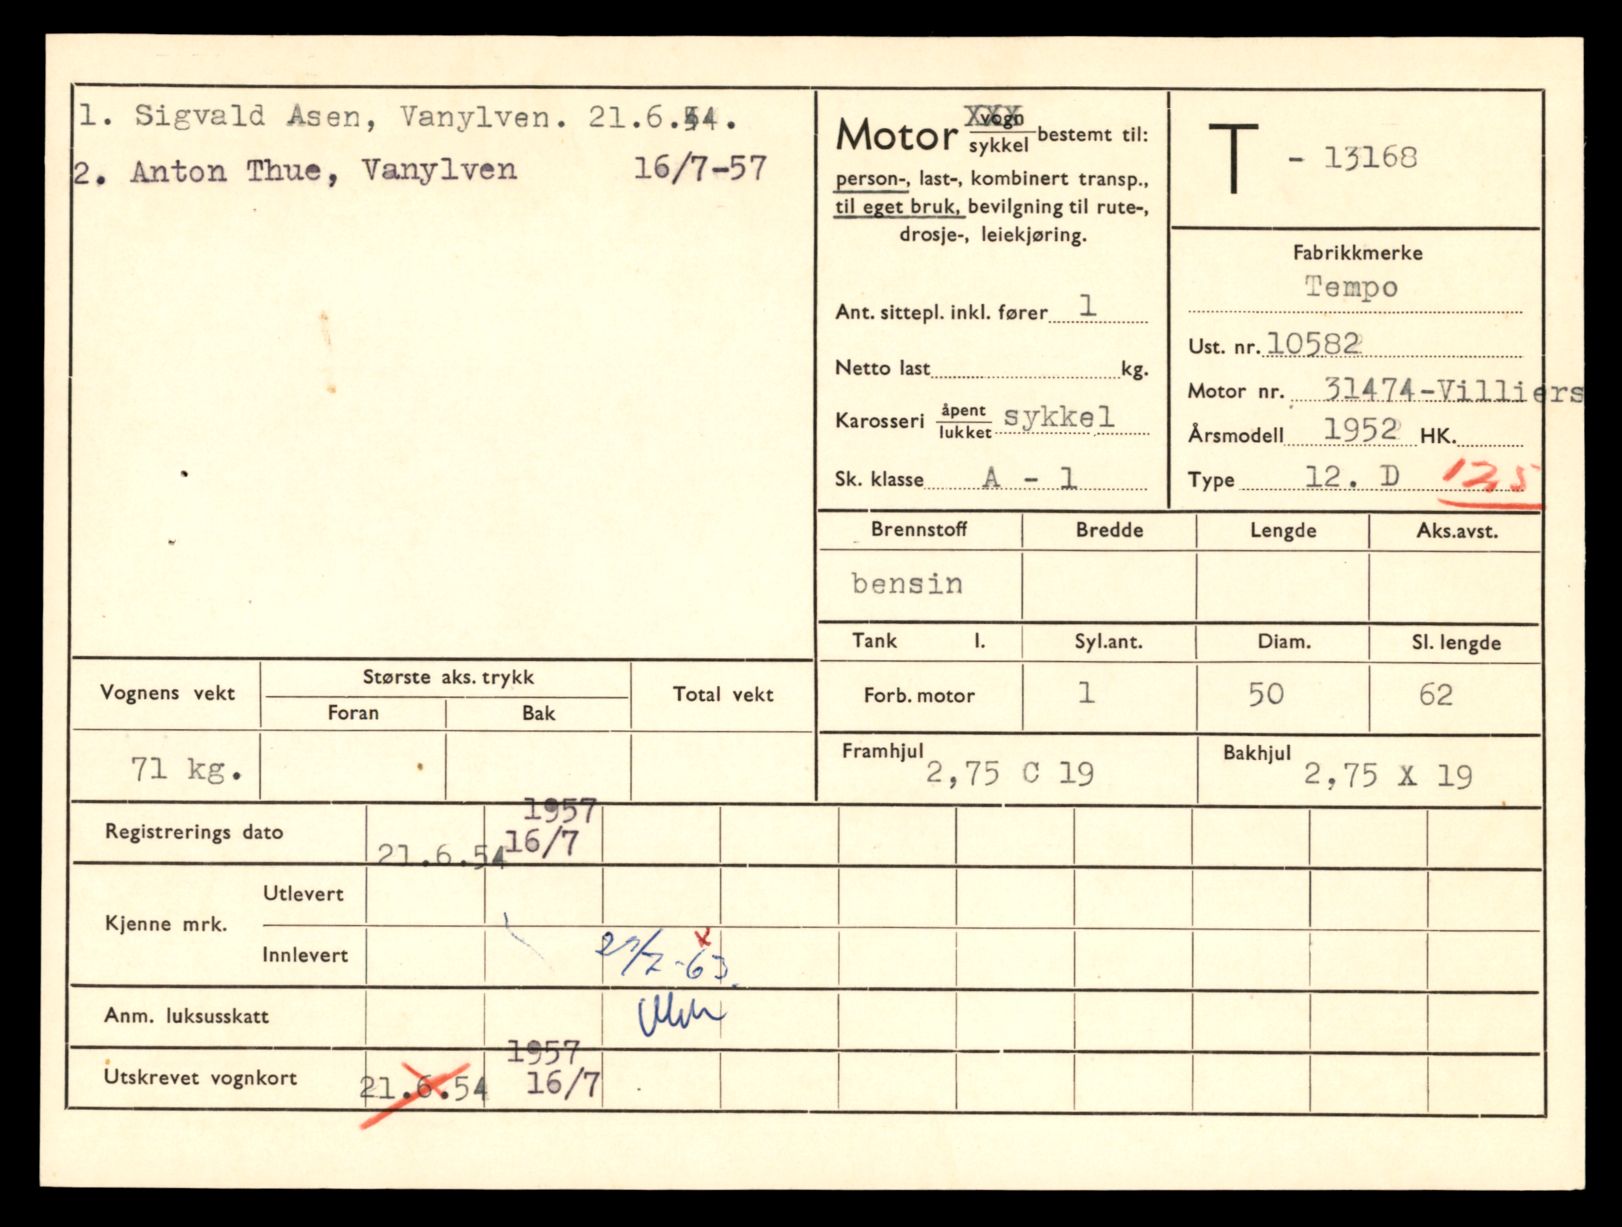 1. Sigvald Asen, Vanylven. 21.6.54.
2. Anton Thue, Vanylven 16/7-57
Motor vogn XXX
sykkel bestemt til:
person-, last-, kombinert transp.,
til eget bruk, bevilgning til rute-,
drosje-, leiekjøring.
Ant. sittepl. inkl. fører 1
Netto last kg.
Karosseri åpent
lukket sykkel
Sk. klasse A - 1
T - 13168
Fabrikkmerke
Tempo
Ust. nr. 10582
Motor nr. 31474-Villiers
Årsmodell 1952 HK.
Type 12. D 125
Brennstoff Bredde Lengde Aks.avst.
bensin
Tank l. Syl.ant. Diam. Sl. lengde
Forb. motor 1 50 62
Framhjul 2,75 C 19 Bakhjul 2,75 X 19
Vognens vekt Største aks. trykk Total vekt
Foran Bak
71 kg.
Registrerings dato 21.6.54 1957
16/7
Kjenne mrk. Utlevert
Innlevert 27/7-63
Anm. luksusskatt
Utskrevet vognkort 21.6.54 1957
16/7